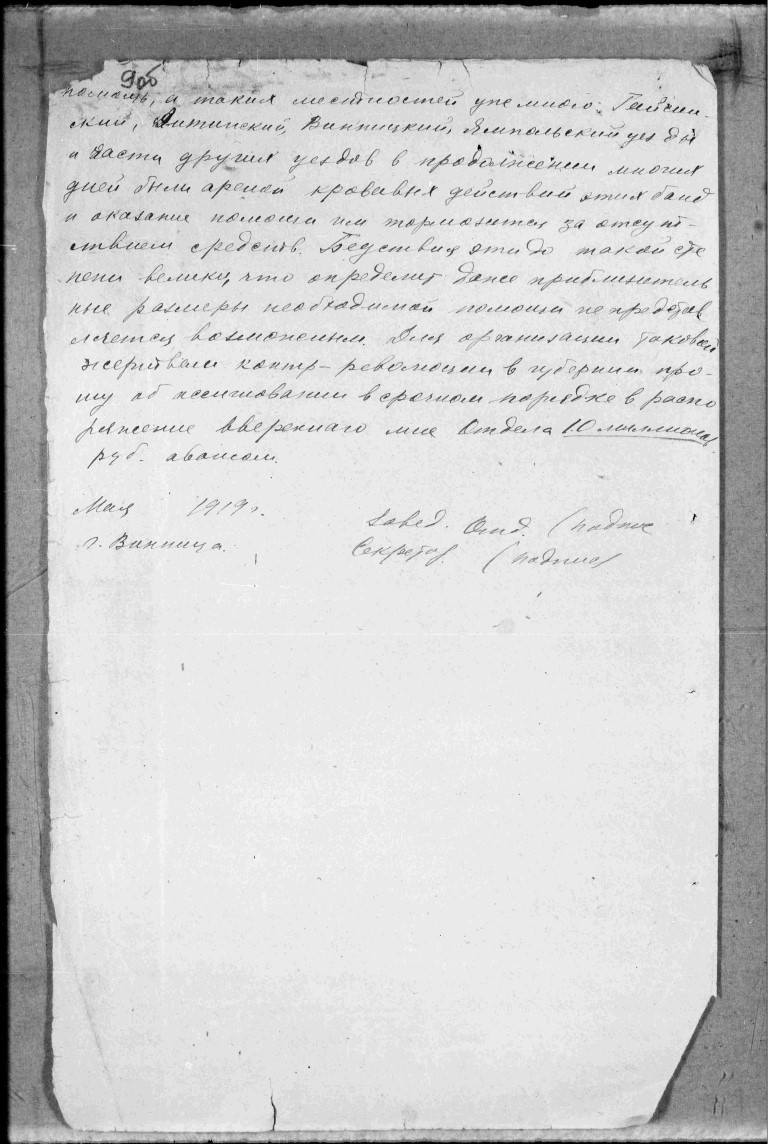 9 об
помощь, а таких местностей уже много: Гайсин-
ский, Литинский, Винницкий, Ямпольский уезды
и части других уездов в продолжении многих
дней были ареной кровавых действий этих банд
и оказание помощи им тормозится за отсут-
ствием средств. Бедствия эти до такой сте
пени велики, что определить даже приблизитель
ные размеры необходимой помощи не представ
ляется возможным. Для организации таковой
жертвам контр-революции в губернии про-
шу об ассигновании в срочном порядке в распо
ряжение вверенного мне Отдела 10 миллионов
руб. авансом.
Мая 1919 г.
г. Винница.
Завед. Отд. (подпис
Секретар. (подпись